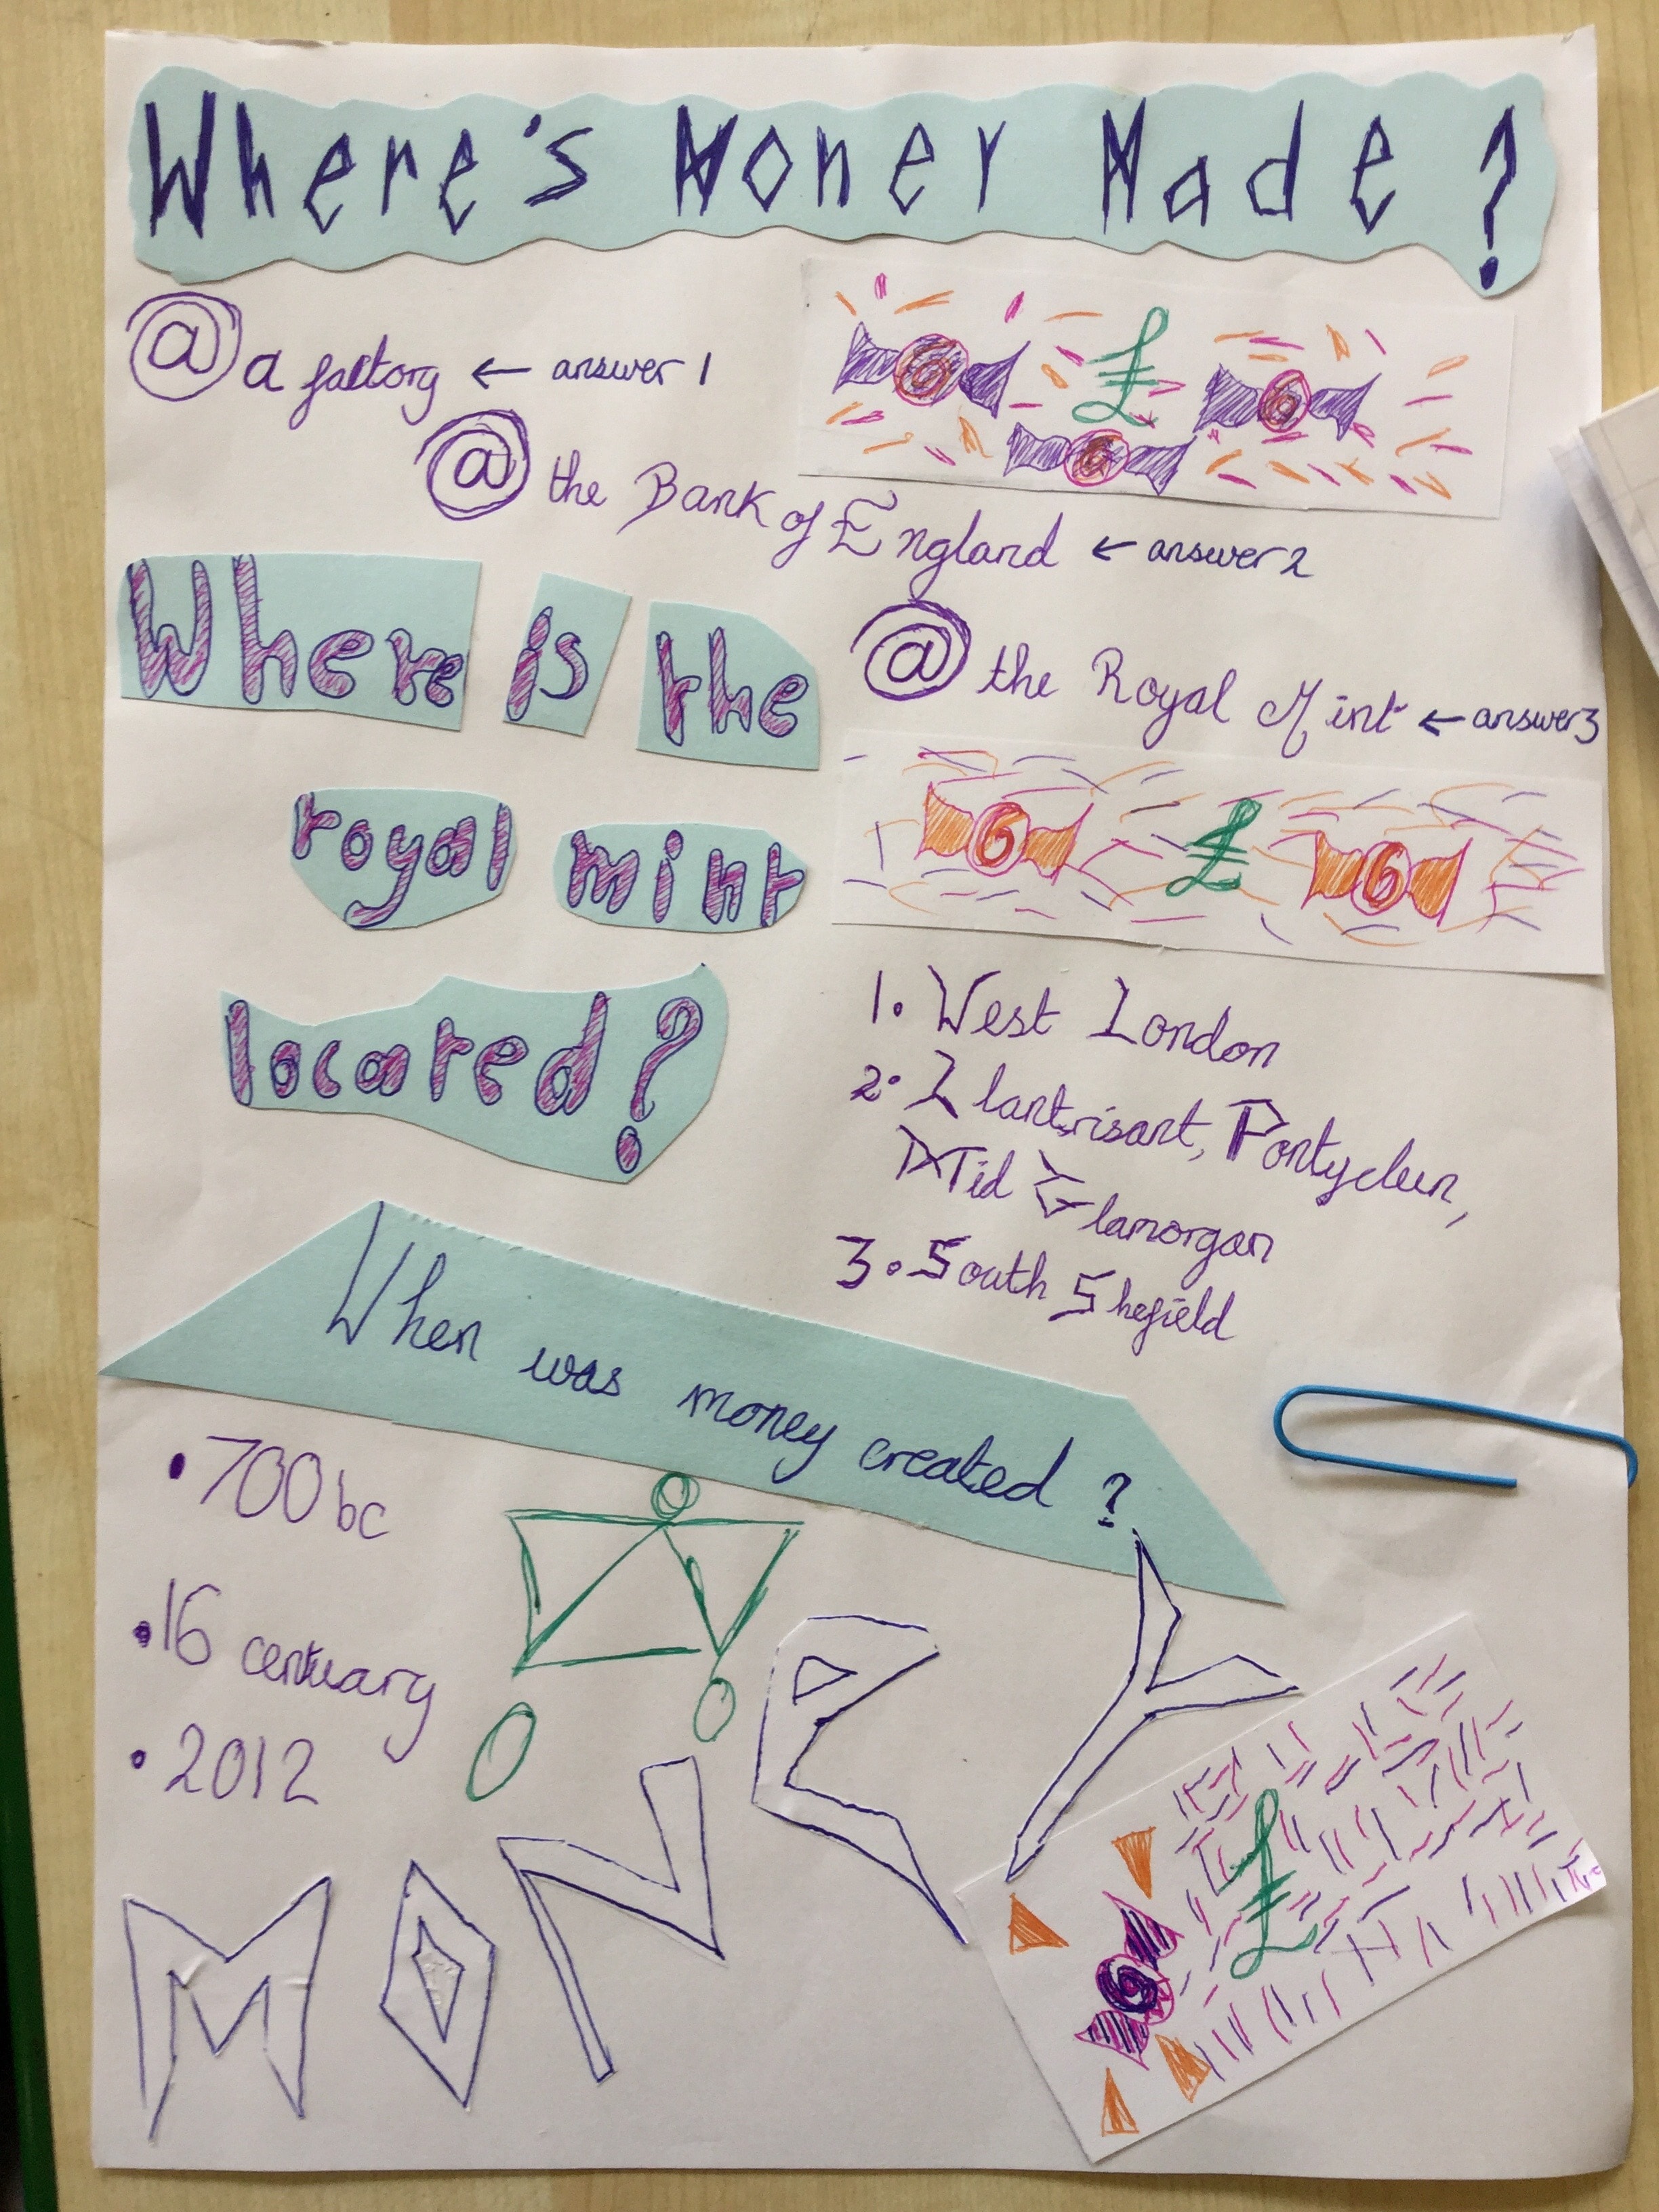 Where's Money Made?
@ a factory ← answer 1
@ the Bank of England ← answer 2
@ the Royal Mint ← answer 3
£
Where is the
royal mint
located?
£
1. West London
2. Llantrisant, Pontyclun,
Mid Glamorgan
3. South Shefield
When was money created?
• 700 bc
• 16 centuary
• 2012
MONEY
£